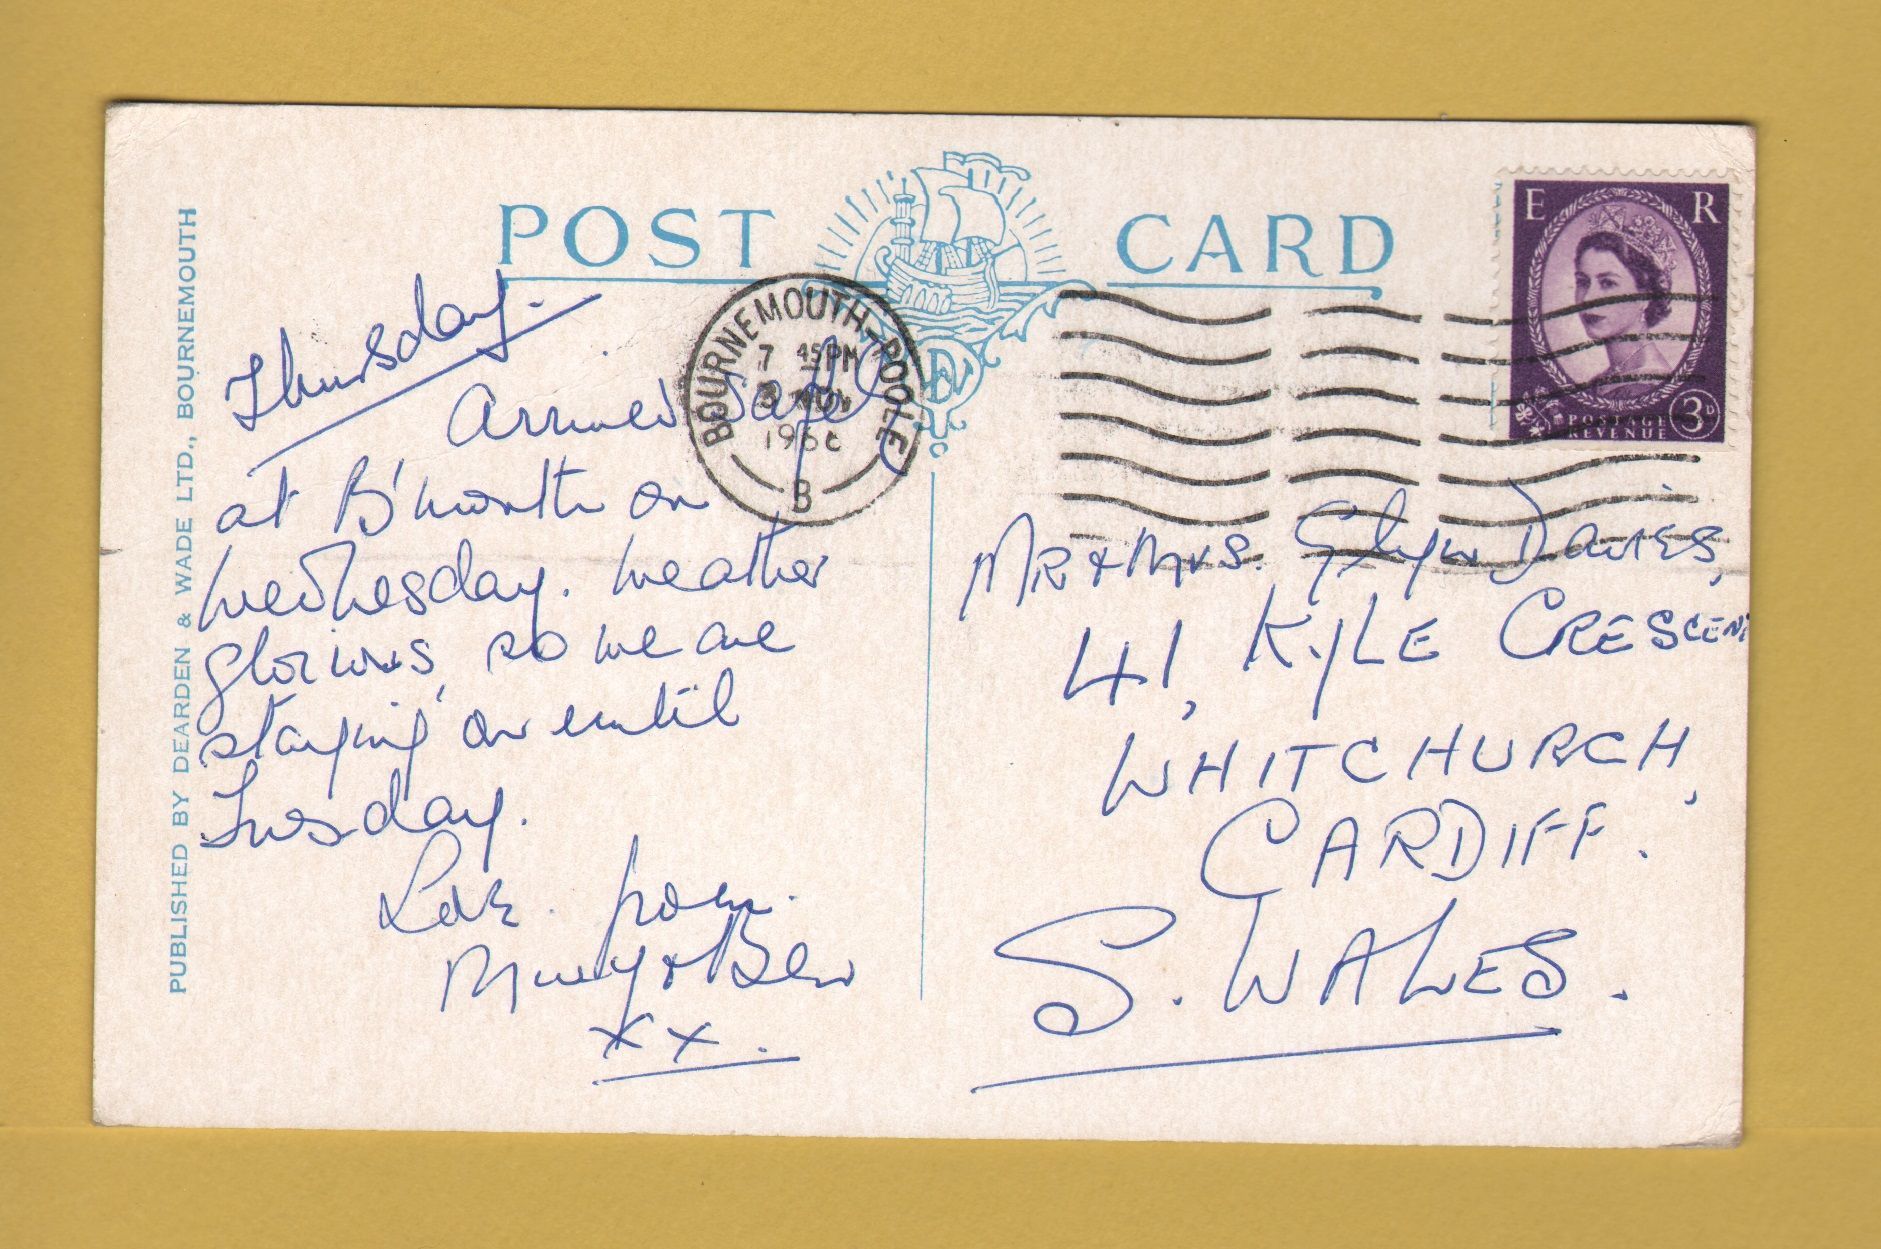 POST CARD
PUBLISHED BY DEARDEN & WADE LTD., BOURNEMOUTH
Thursday.
Arrived safely
at B'mouth on
Wednesday. Weather
glorious, so we are
staying on until
Tuesday.
Love from
& Bev
XX.
BOURNEMOUTH-POOLE
7 45PM
3
B
E R
POSTAGE
REVENUE
3D
MR & MRS. Glyn DAVIES,
41, KYLE CRESCENT
WHITCHURCH,
CARDIFF.
S. WALES.